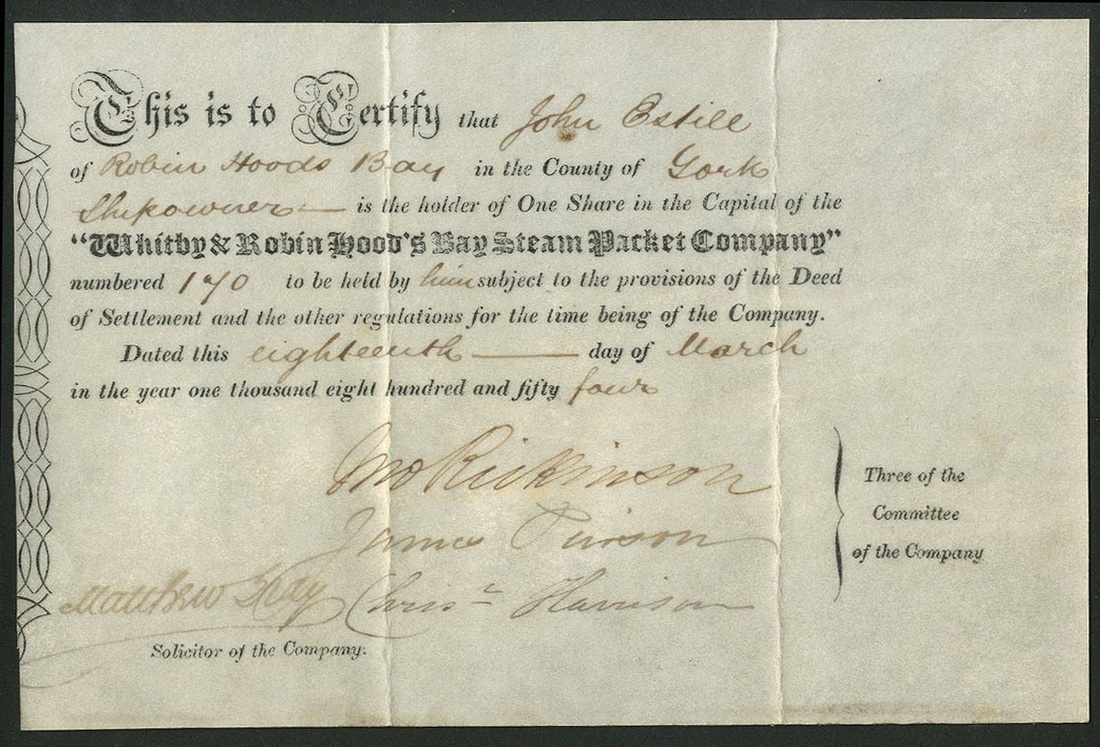 This is to Certify that John Estill
of Robin Hoods Bay in the County of York
Shipowner — is the holder of One Share in the Capital of the
"Whitby & Robin Hood's Bay Steam Packet Company"
numbered 170 to be held by him subject to the provisions of the Deed
of Settlement and the other regulations for the time being of the Company.
Dated this eighteenth — day of March
in the year one thousand eight hundred and fifty four
Jno Rickinson
James
Matthew Gray Chrisr Harrison
Three of the
Committee
of the Company
Solicitor of the Company.